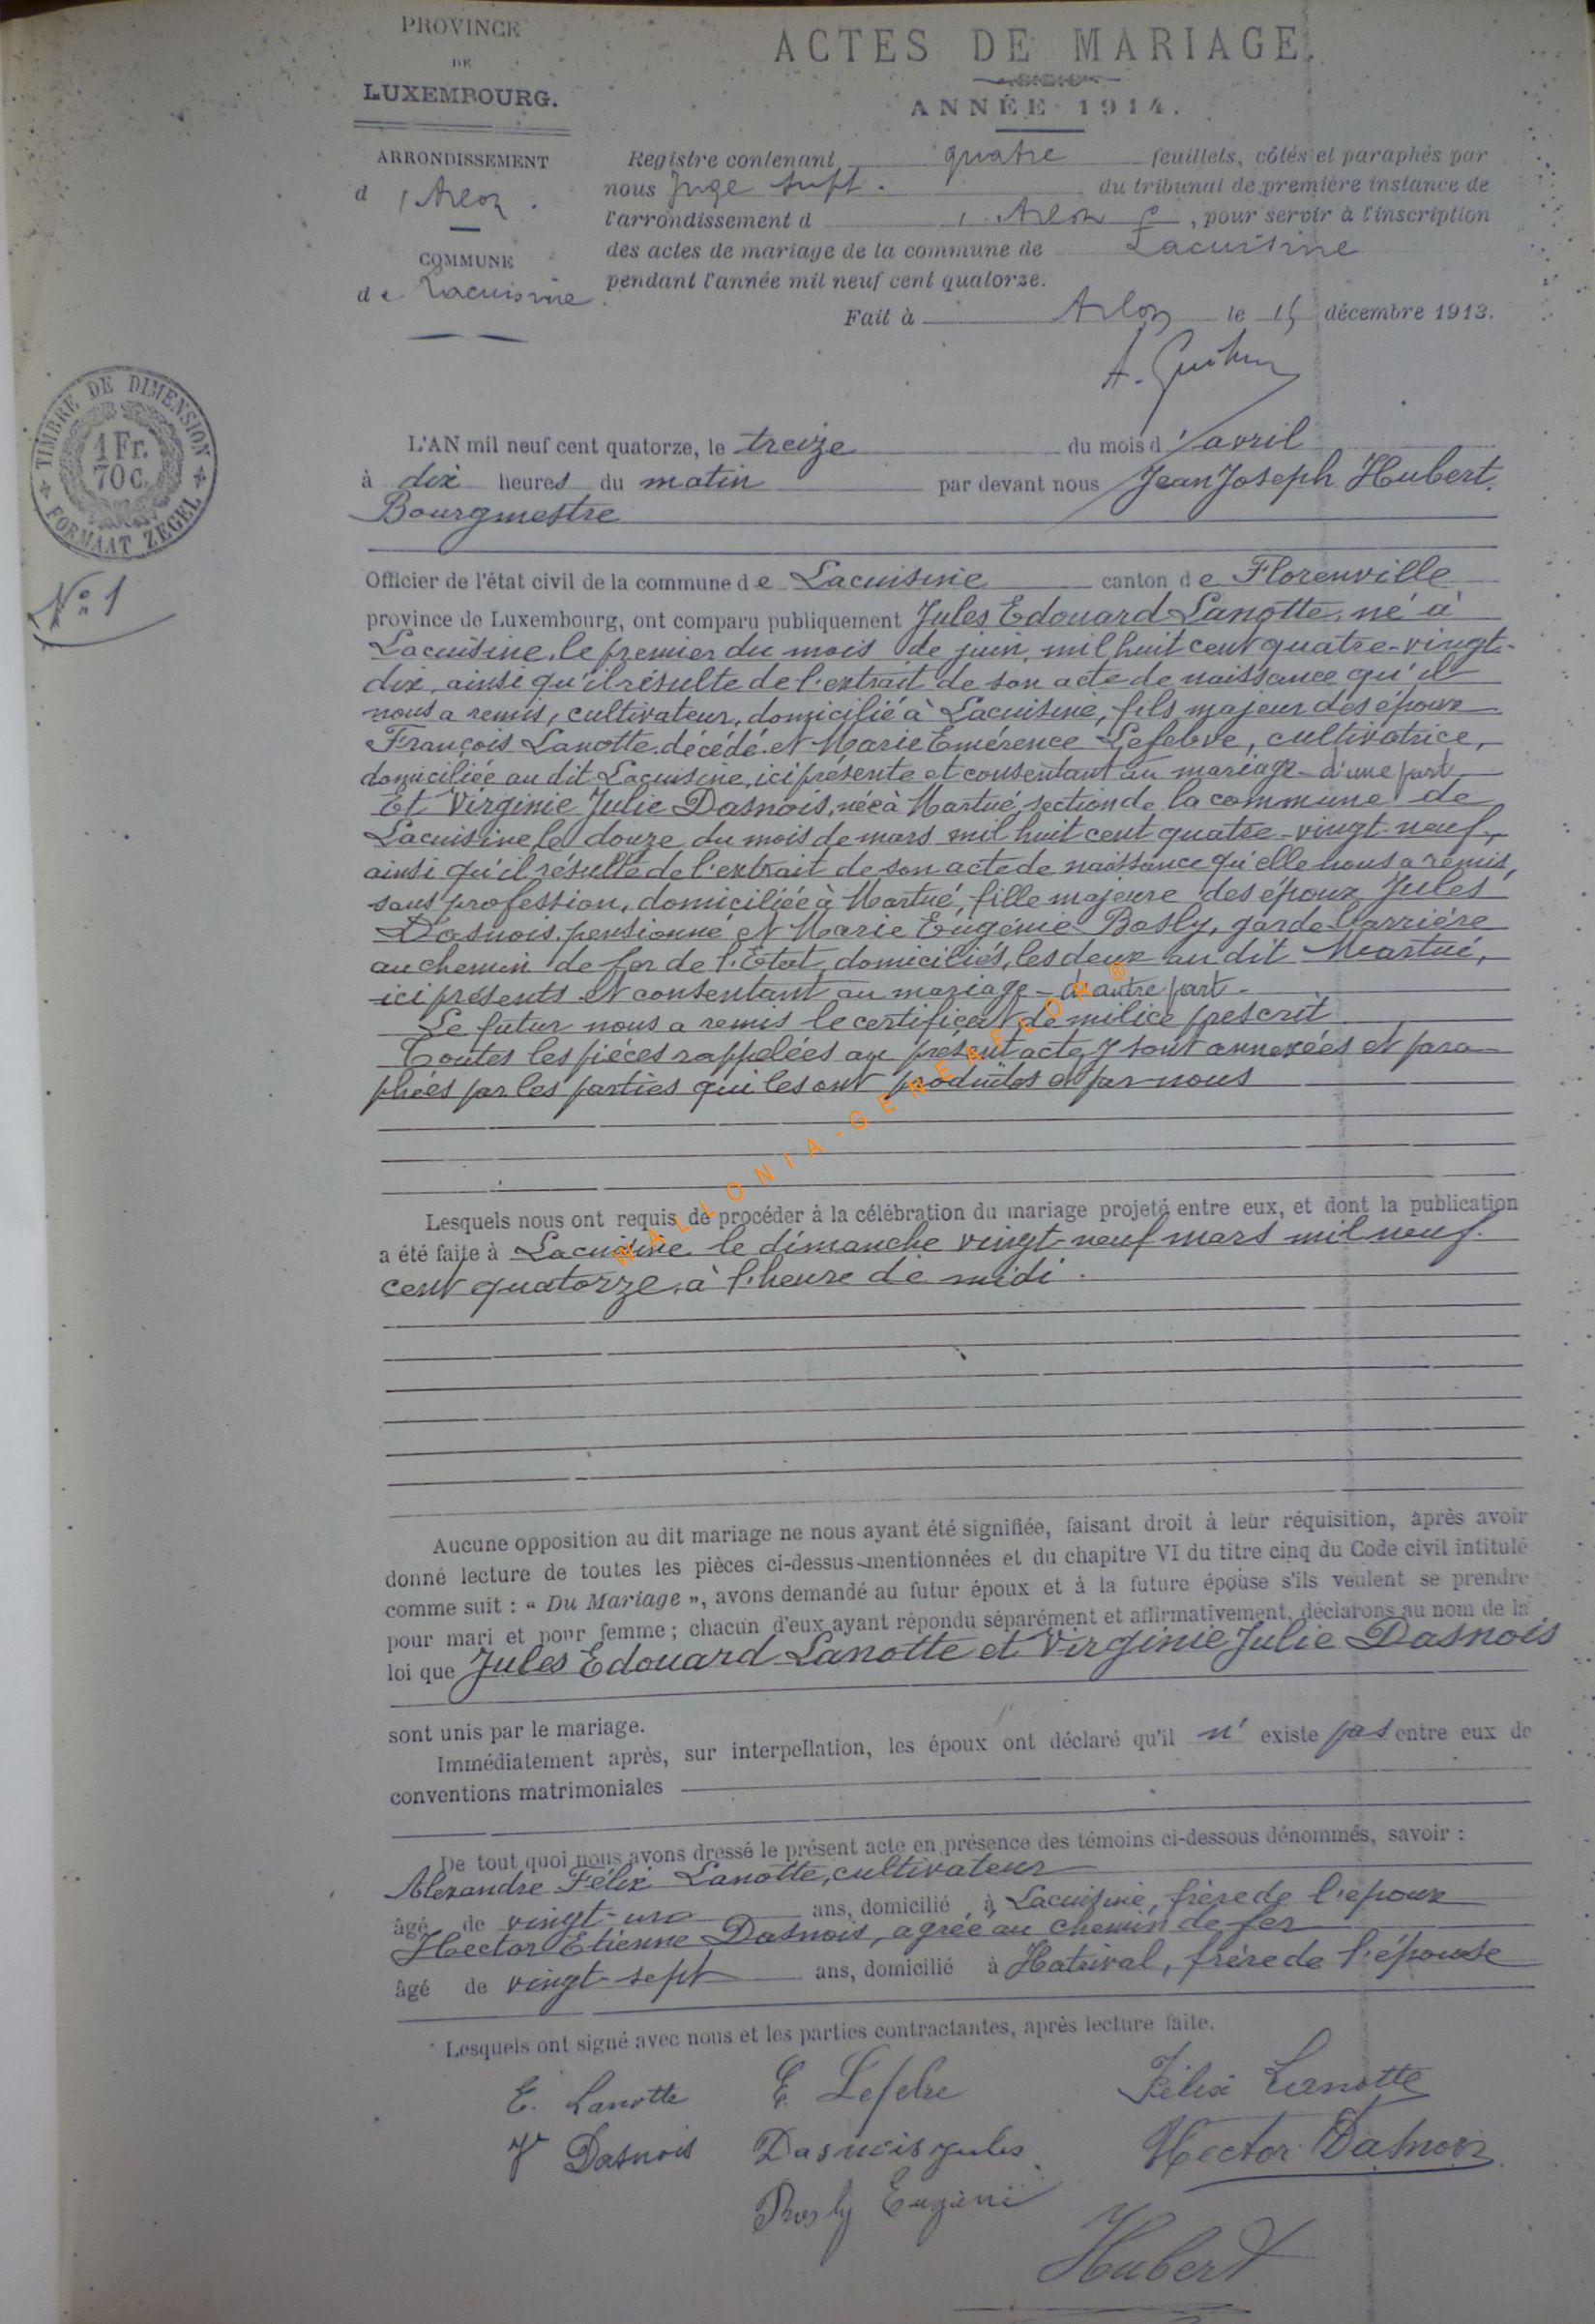 PROVINCE
DE
LUXEMBOURG.
ARRONDISSEMENT
d'Arlon.
COMMUNE
de Lacuisine
ACTES DE MARIAGE.
ANNÉE 1914.
Registre contenant quatre feuillets, côtés et paraphés par
nous Juge supt. du tribunal de première instance de
l'arrondissement d'Arlon, pour servir à l'inscription
des actes de mariage de la commune de Lacuisine
pendant l'année mil neuf cent quatorze.
Fait à Arlon le 15 décembre 1913.
TIMBRE DE DIMENSION
1 Fr.
70 c.
FORMAAT ZEGEL
No 1
L'AN mil neuf cent quatorze, le treize du mois d'avril
à dix heures du matin par devant nous Jean Joseph Hubert,
Bourgmestre
Officier de l'état civil de la commune de Lacuisine canton de Florenville
province de Luxembourg, ont comparu publiquement Jules Edouard Lanotte, né à
Lacuisine, le premier du mois de juin, mil huit cent quatre-vingt-
dix, ainsi qu'il résulte de l'extrait de son acte de naissance qu'il
nous a remis, cultivateur, domicilié à Lacuisine, fils majeur des époux
François Lanotte, décédé et Marie Emérence Lefebve, cultivatrice,
domiciliée au dit Lacuisine, ici présente et consentant au mariage - d'une part
Et Virginie Julie Dasnois, née à Martué, section de la commune de
Lacuisine, le douze du mois de mars mil huit cent quatre-vingt-neuf,
ainsi qu'il résulte de l'extrait de son acte de naissance qu'elle nous a remis,
sans profession, domiciliée à Martué, fille majeure des époux Jules
Dasnois, pensionné et Marie Eugénie Bosly, garde barrière
au chemin de fer de l'Etat, domiciliés, les deux au dit Martué,
ici présents et consentant au mariage - d'autre part.
Le futur nous a remis le certificat de milice prescrit
Toutes les pièces rappelées au présent acte, y sont annexées et para-
phées par les parties qui les ont produites et par nous
WALLONIA-GENEAFLOR®
Lesquels nous ont requis de procéder à la célébration du mariage projeté entre eux, et dont la publication
a été faite à Lacuisine le dimanche vingt-neuf mars mil neuf
cent quatorze, à l'heure de midi.
Aucune opposition au dit mariage ne nous ayant été signifiée, faisant droit à leur réquisition, après avoir
donné lecture de toutes les pièces ci-dessus mentionnées et du chapitre VI du titre cinq du Code civil intitulé
comme suit : « Du Mariage », avons demandé au futur époux et à la future épouse s'ils veulent se prendre
pour mari et pour femme ; chacun d'eux ayant répondu séparément et affirmativement, déclarons au nom de la
loi que Jules Edouard Lanotte et Virginie Julie Dasnois
sont unis par le mariage.
Immédiatement après, sur interpellation, les époux ont déclaré qu'il n' existe pas entre eux de
conventions matrimoniales
De tout quoi nous avons dressé le présent acte en présence des témoins ci-dessous dénommés, savoir :
Alexandre Félix Lanotte, cultivateur
âgé de vingt-un ans, domicilié à Lacuisine, frère de l'époux
Hector Etienne Dasnois, agréé au chemin de fer
âgé de vingt-sept ans, domicilié à Hatrival, frère de l'épouse
Lesquels ont signé avec nous et les parties contractantes, après lecture faite.
E. Lanotte E. Lefebve Félix Lanotte
V Dasnois Dasnois Jules Hector Dasnois
Bosly Eugénie
Hubert